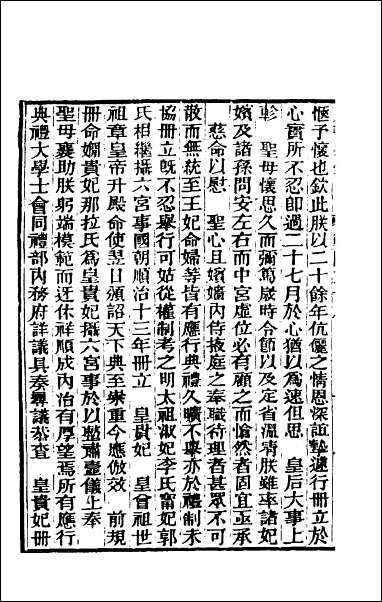 愜予懷也欽此朕以二十餘年伉儷之情恩深誼摯遽行冊立於
心實所不忍卽過二十七月於心猶以為速但思　皇后大事上
軫　聖母懷思久而彌篤歲時令節以及定省溫凊朕雖率諸妃
嬪及諸孫問安左右而中宮虛位必有顧之而愴然者固宜亟承
　慈命以慰　聖心且嬪嬙內侍掖庭之奉職待理者甚眾不可
散而無統至王妃命婦等皆有應行典禮久曠不舉亦於禮制未
協冊立既不忍舉行可姑從權制考之明太祖淑妃李氏甯妃郭
氏相繼攝六宮事國朝順治十三年冊立　皇貴妃　皇曾祖世
祖章皇帝升殿命使翌日頒詔天下典至崇重今應倣效　前規
冊命嫻貴妃那拉氏為皇貴妃攝六宮事於以整肅壼儀上奉
聖母襄助朕躬端模範而迓休祥順成內治有厚望焉所有應行
典禮大學士會同禮部內務府詳議具奏尋議恭查　皇貴妃冊